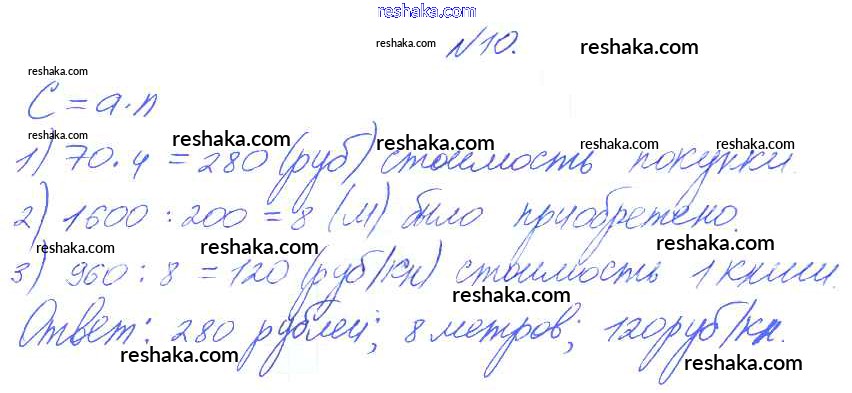 reshaka.com
№10. reshaka.com reshaka.com
reshaka.com
C = a·n
reshaka.com reshaka.com reshaka.com reshaka.com
1) 70·4 = 280 (руб) стоимость покупки.
2) 1600 : 200 = 8 (м) было приобретено.
reshaka.com reshaka.com reshaka.com reshaka.com
3) 960 : 8 = 120 (руб/кн) стоимость 1 книги.
reshaka.com
Ответ: 280 рублей; 8 метров; 120 руб/кн.
reshaka.com reshaka.com reshaka.com